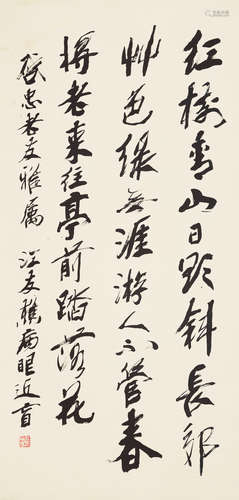 红树青山日欲斜长郊
艸色绿无涯游人不管春
将老来往亭前踏落花
忠老友雅属 江友樵病眼近盲